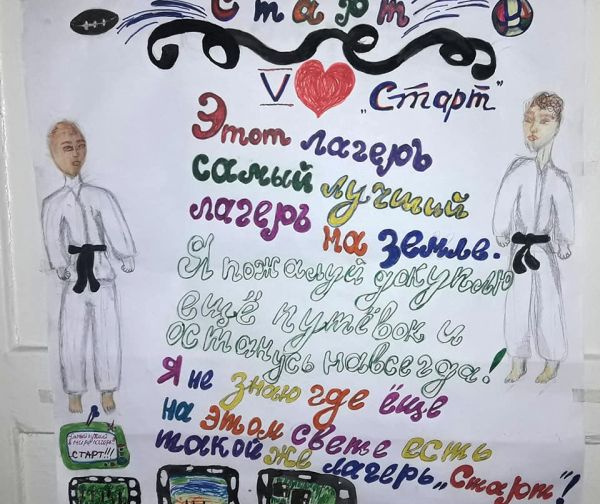 Старт
V „Старт"
Этот лагерь
самый лучший
лагерь на земле.
Я пожалуй докуплю
ещё путёвок и
останусь навсегда!
Я не знаю где ёще
на этом свете есть
такой же лагерь „Старт"!
СТАРТ!!!